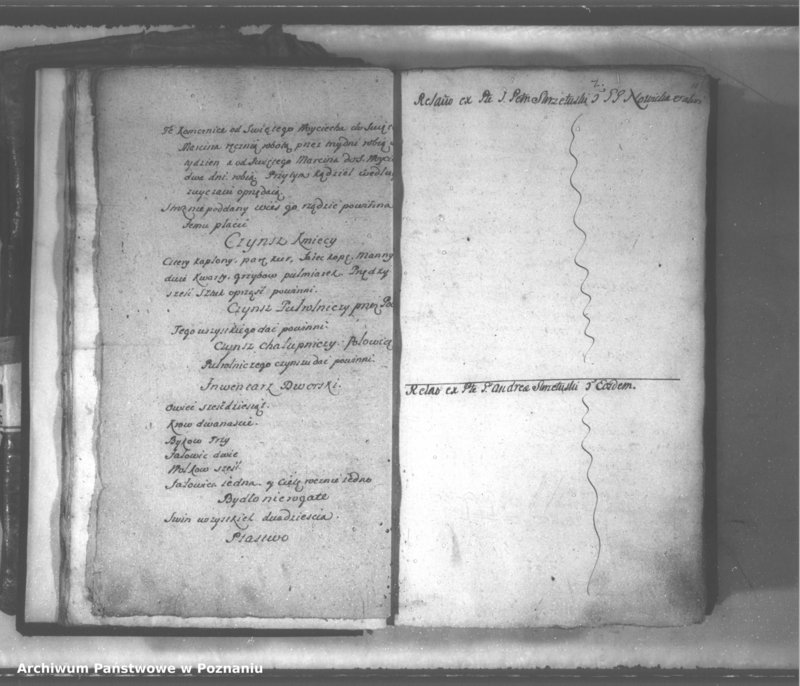 Te Komornice od Swiętego Woyciecha do Swię
Marcina ręczną robotą przez trzy dni robią
tydzien a od Swiętego Marcina do S. Woyci
dwa dni robią. Przytym kądziel wedlu
zwyczaiu oprzędaią
poddany powinna
temu płacić
Czynsz Kmiecy
Cztery kapłony, parę kur, Jaiec kopę, Manny
dwie kwarty, grzybow pułmiarek. Przędzy
sześć Sztuk oprząść powinni.
Czynsz Pułrolniczy przez Poł
Tego wszystkiego dać powinni
Czynsz Chałupniczy. Połowicę
Pułrolniczego czynszu dać powinni.
Inwentarz Dworski.
Owiec sześćdziesiąt.
Krow dwanaście.
Bykow trzy
Jałowic dwie
Wołkow sześć
Jałowica iedna. y Cielę roczne iedno
Bydło nierogate
Swin wszystkich dwadzieścia.
Ptastwo
2.
Relatio ex Pte J. Petri Skrzetuski
Relatio ex Pte J. Andrea Skrzetuski Eosdem.
Archiwum Państwowe w Poznaniu